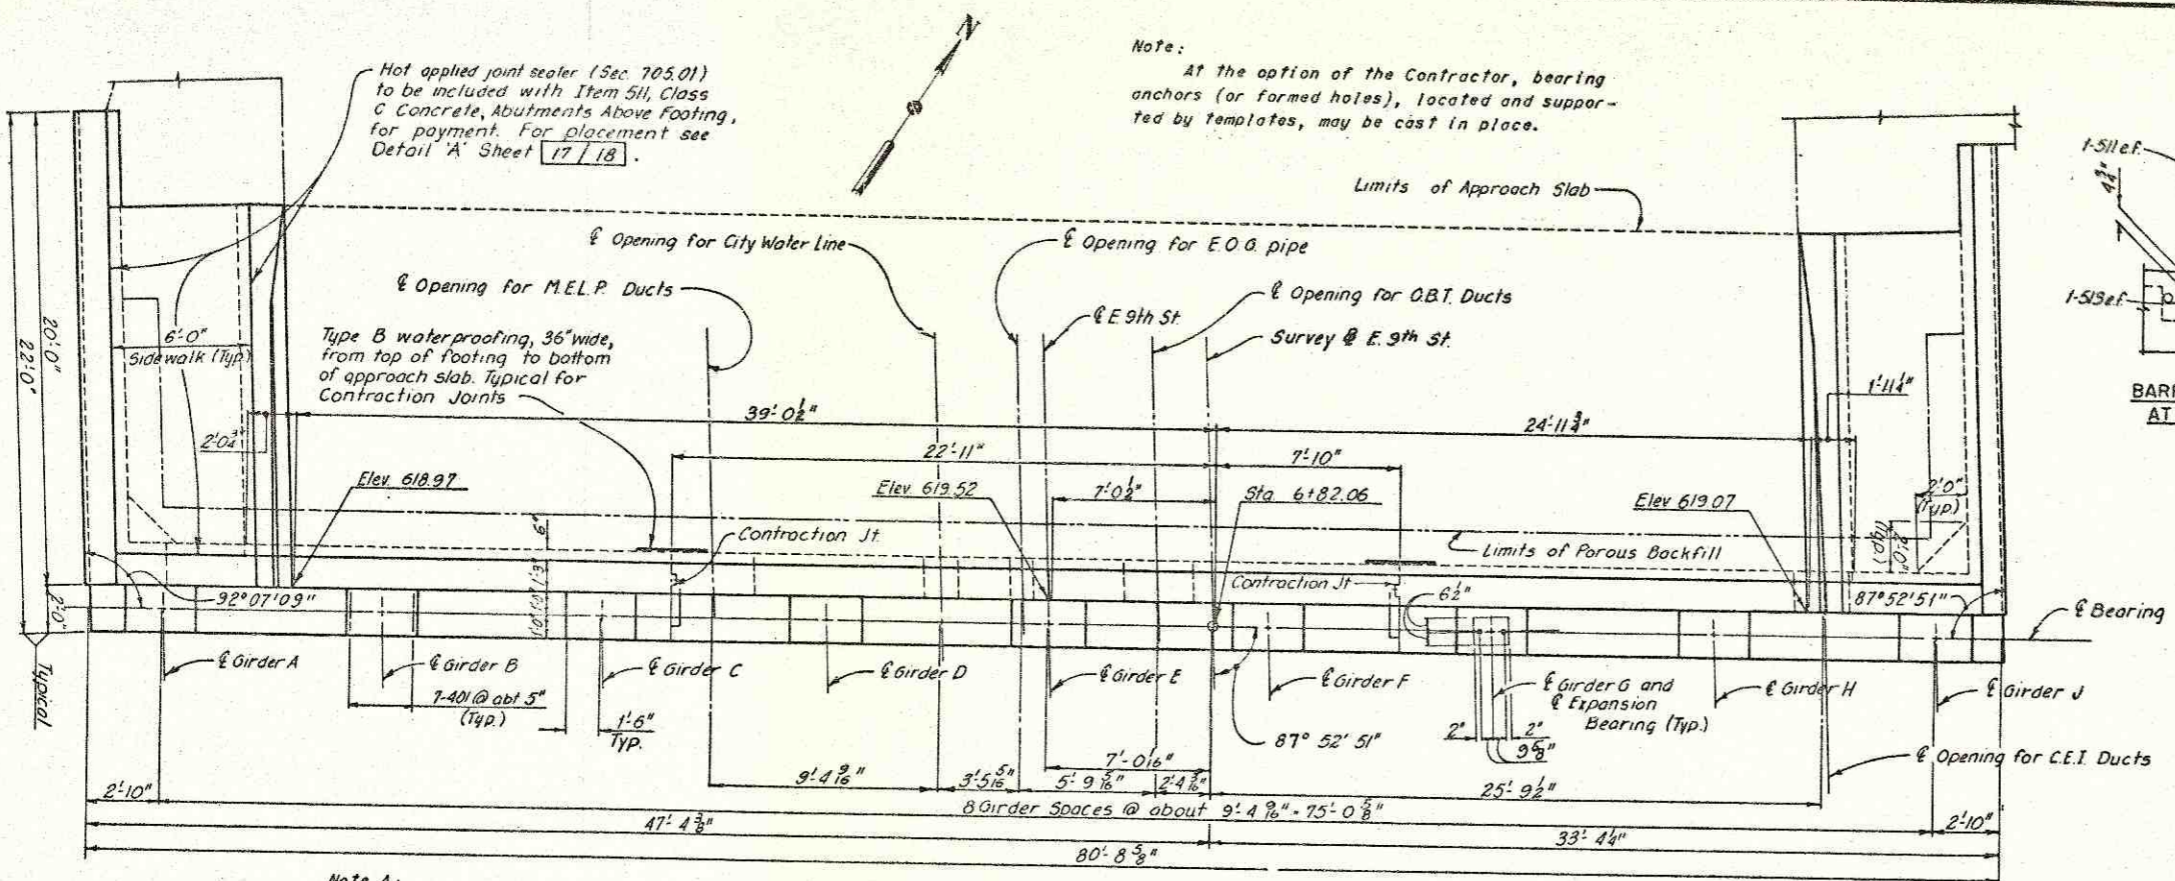 N
Hot applied joint sealer (Sec. 705.01)
to be included with Item 511, Class
C Concrete, Abutments Above Footing,
for payment. For placement see
Detail 'A' Sheet 17/18.
Note:
At the option of the Contractor, bearing
anchors (or formed holes), located and suppor-
ted by templates, may be cast in place.
Limits of Approach Slab
1-511 e.f.
4 3/4"
1-513 e.f.
BARR
AT
℄ Opening for City Water Line
℄ Opening for E.O.G. pipe
℄ Opening for M.E.L.P. Ducts
℄ Opening for O.B.T. Ducts
℄ E. 9th St.
Survey ℄ E. 9th St.
Type B waterproofing, 36" wide,
from top of footing to bottom
of approach slab. Typical for
Contraction Joints
22'-0"
20'-0"
6'-0"
Sidewalk (Typ)
2'-0 3/4"
39'-0 1/2"
24'-11 3/4"
1'-11 1/4"
22'-11"
7'-10"
7'-0 1/2"
Elev. 618.97
Elev. 619.52
Sta. 6+82.06
Elev. 619.07
2'-0"
(Typ.)
2'-0"
(Typ.)
6"
1'-3"
1'-0"
1'-0"
Contraction Jt.
Limits of Porous Backfill
Contraction Jt.
6 1/2"
92° 07' 09"
87° 52' 51"
℄ Bearing
2'-0"
Typical
℄ Girder A
℄ Girder B
℄ Girder C
℄ Girder D
℄ Girder E
℄ Girder F
℄ Girder G and
℄ Expansion
Bearing (Typ.)
℄ Girder H
℄ Girder J
7-401 @ abt 5"
(Typ.)
1'-6"
Typ.
2"
2"
9 5/8"
87° 52' 51"
℄ Opening for C.E.I. Ducts
7'-0 1/16"
2'-10"
9'-4 9/16"
3'-5 5/16"
5'-9 5/16"
2'-4 3/16"
25'-9 1/2"
8 Girder Spaces @ about 9'-4 9/16" = 75'-0 5/8"
2'-10"
47'-4 3/8"
33'-4 1/4"
80'-8 5/8"
Note A: